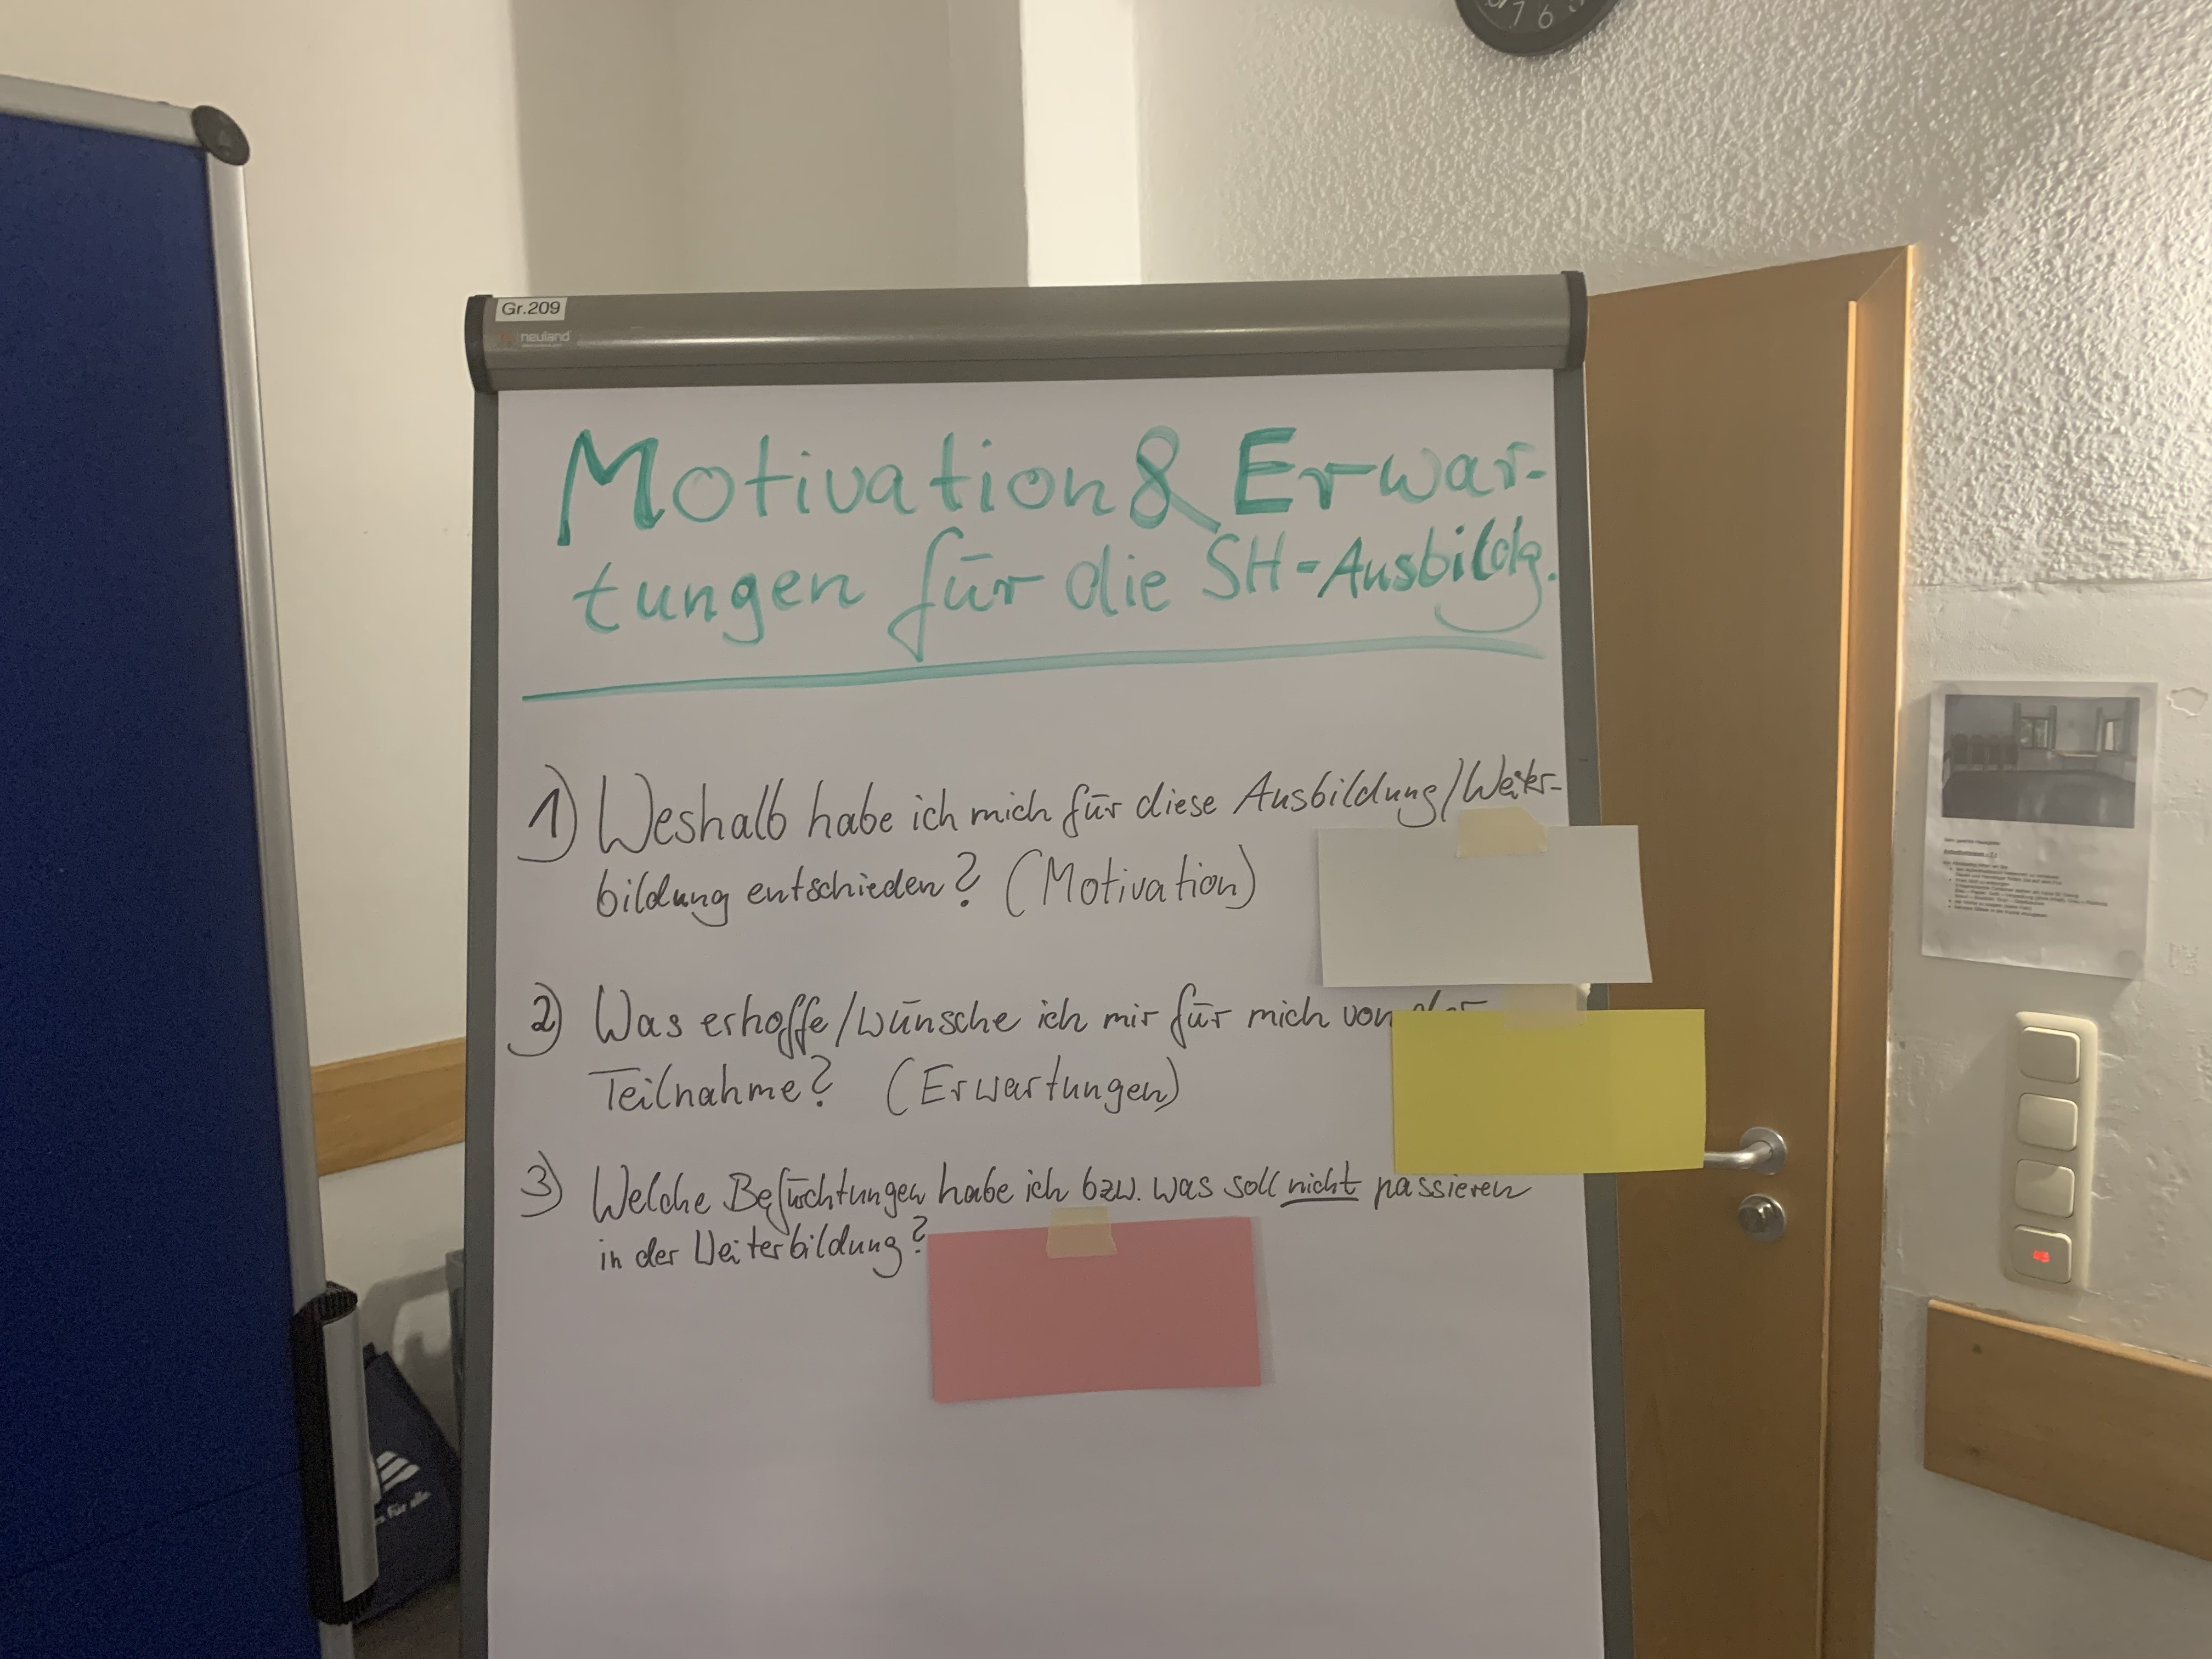 7 6
Gr.209
neuland
Motivation & Erwar-
tungen für die SH-Ausbildg.
1) Weshalb habe ich mich für diese Ausbildung/Weiter-
bildung entschieden? (Motivation)
2) Was erhoffe/wünsche ich mir für mich von der
Teilnahme? (Erwartungen)
3) Welche Befürchtungen habe ich bzw. was soll nicht passieren
in der Weiterbildung?
für alle.